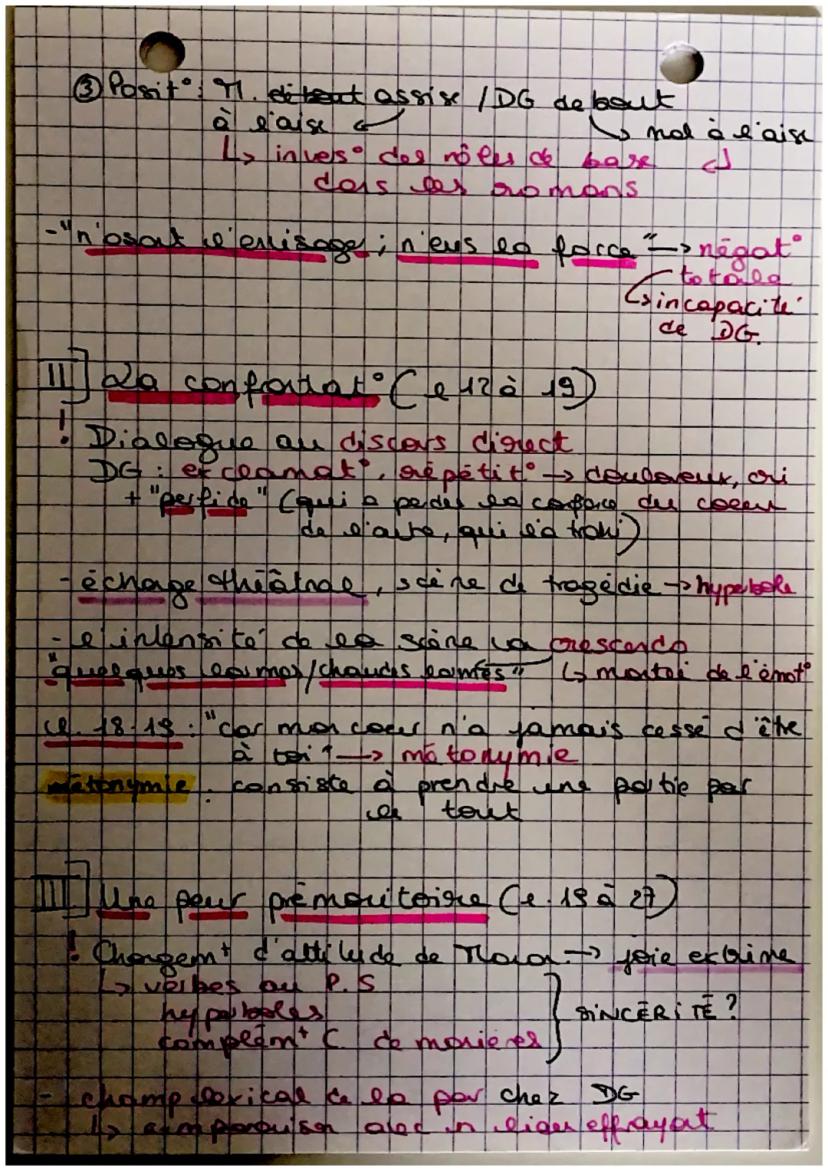 ③ Posit° : M. debout assise / DG debout
à l'aise ↲ ↳ mal à l'aise
↳ invers° des rôles de base ↲
dans les romans
- "n'osant l'envisager ; n'eus la force" → négat°
totale
↳ incapacité
de DG.
II] La confrontat° (l 12 à 19)
! Dialogue au discours direct
DG : exclamat°, répétit° → douloureux, cri
+ "perfide" (qui a perdu la confiance du coeur
de l'autre, qui l'a trahi)
- échange théâtral, scène de tragédie → hyperbole
- l'intensité de la scène va crescendo
"quelques larmes/chaudes larmes" ↳ montée de l'émot°
l. 18-19 : "car mon coeur n'a jamais cessé d'être
à toi" → métonymie
métonymie : consiste à prendre une partie par
le tout
III] Une peur prémonitoire (l. 19 à 27)
! Changemt d'attitude de Manon → joie extrême
↳ verbes au P.S
hyperboles
complémt C. de manières } SINCÉRITÉ ?
- champ lexical de la peur chez DG
↳ comparaison avec un lieu effrayant